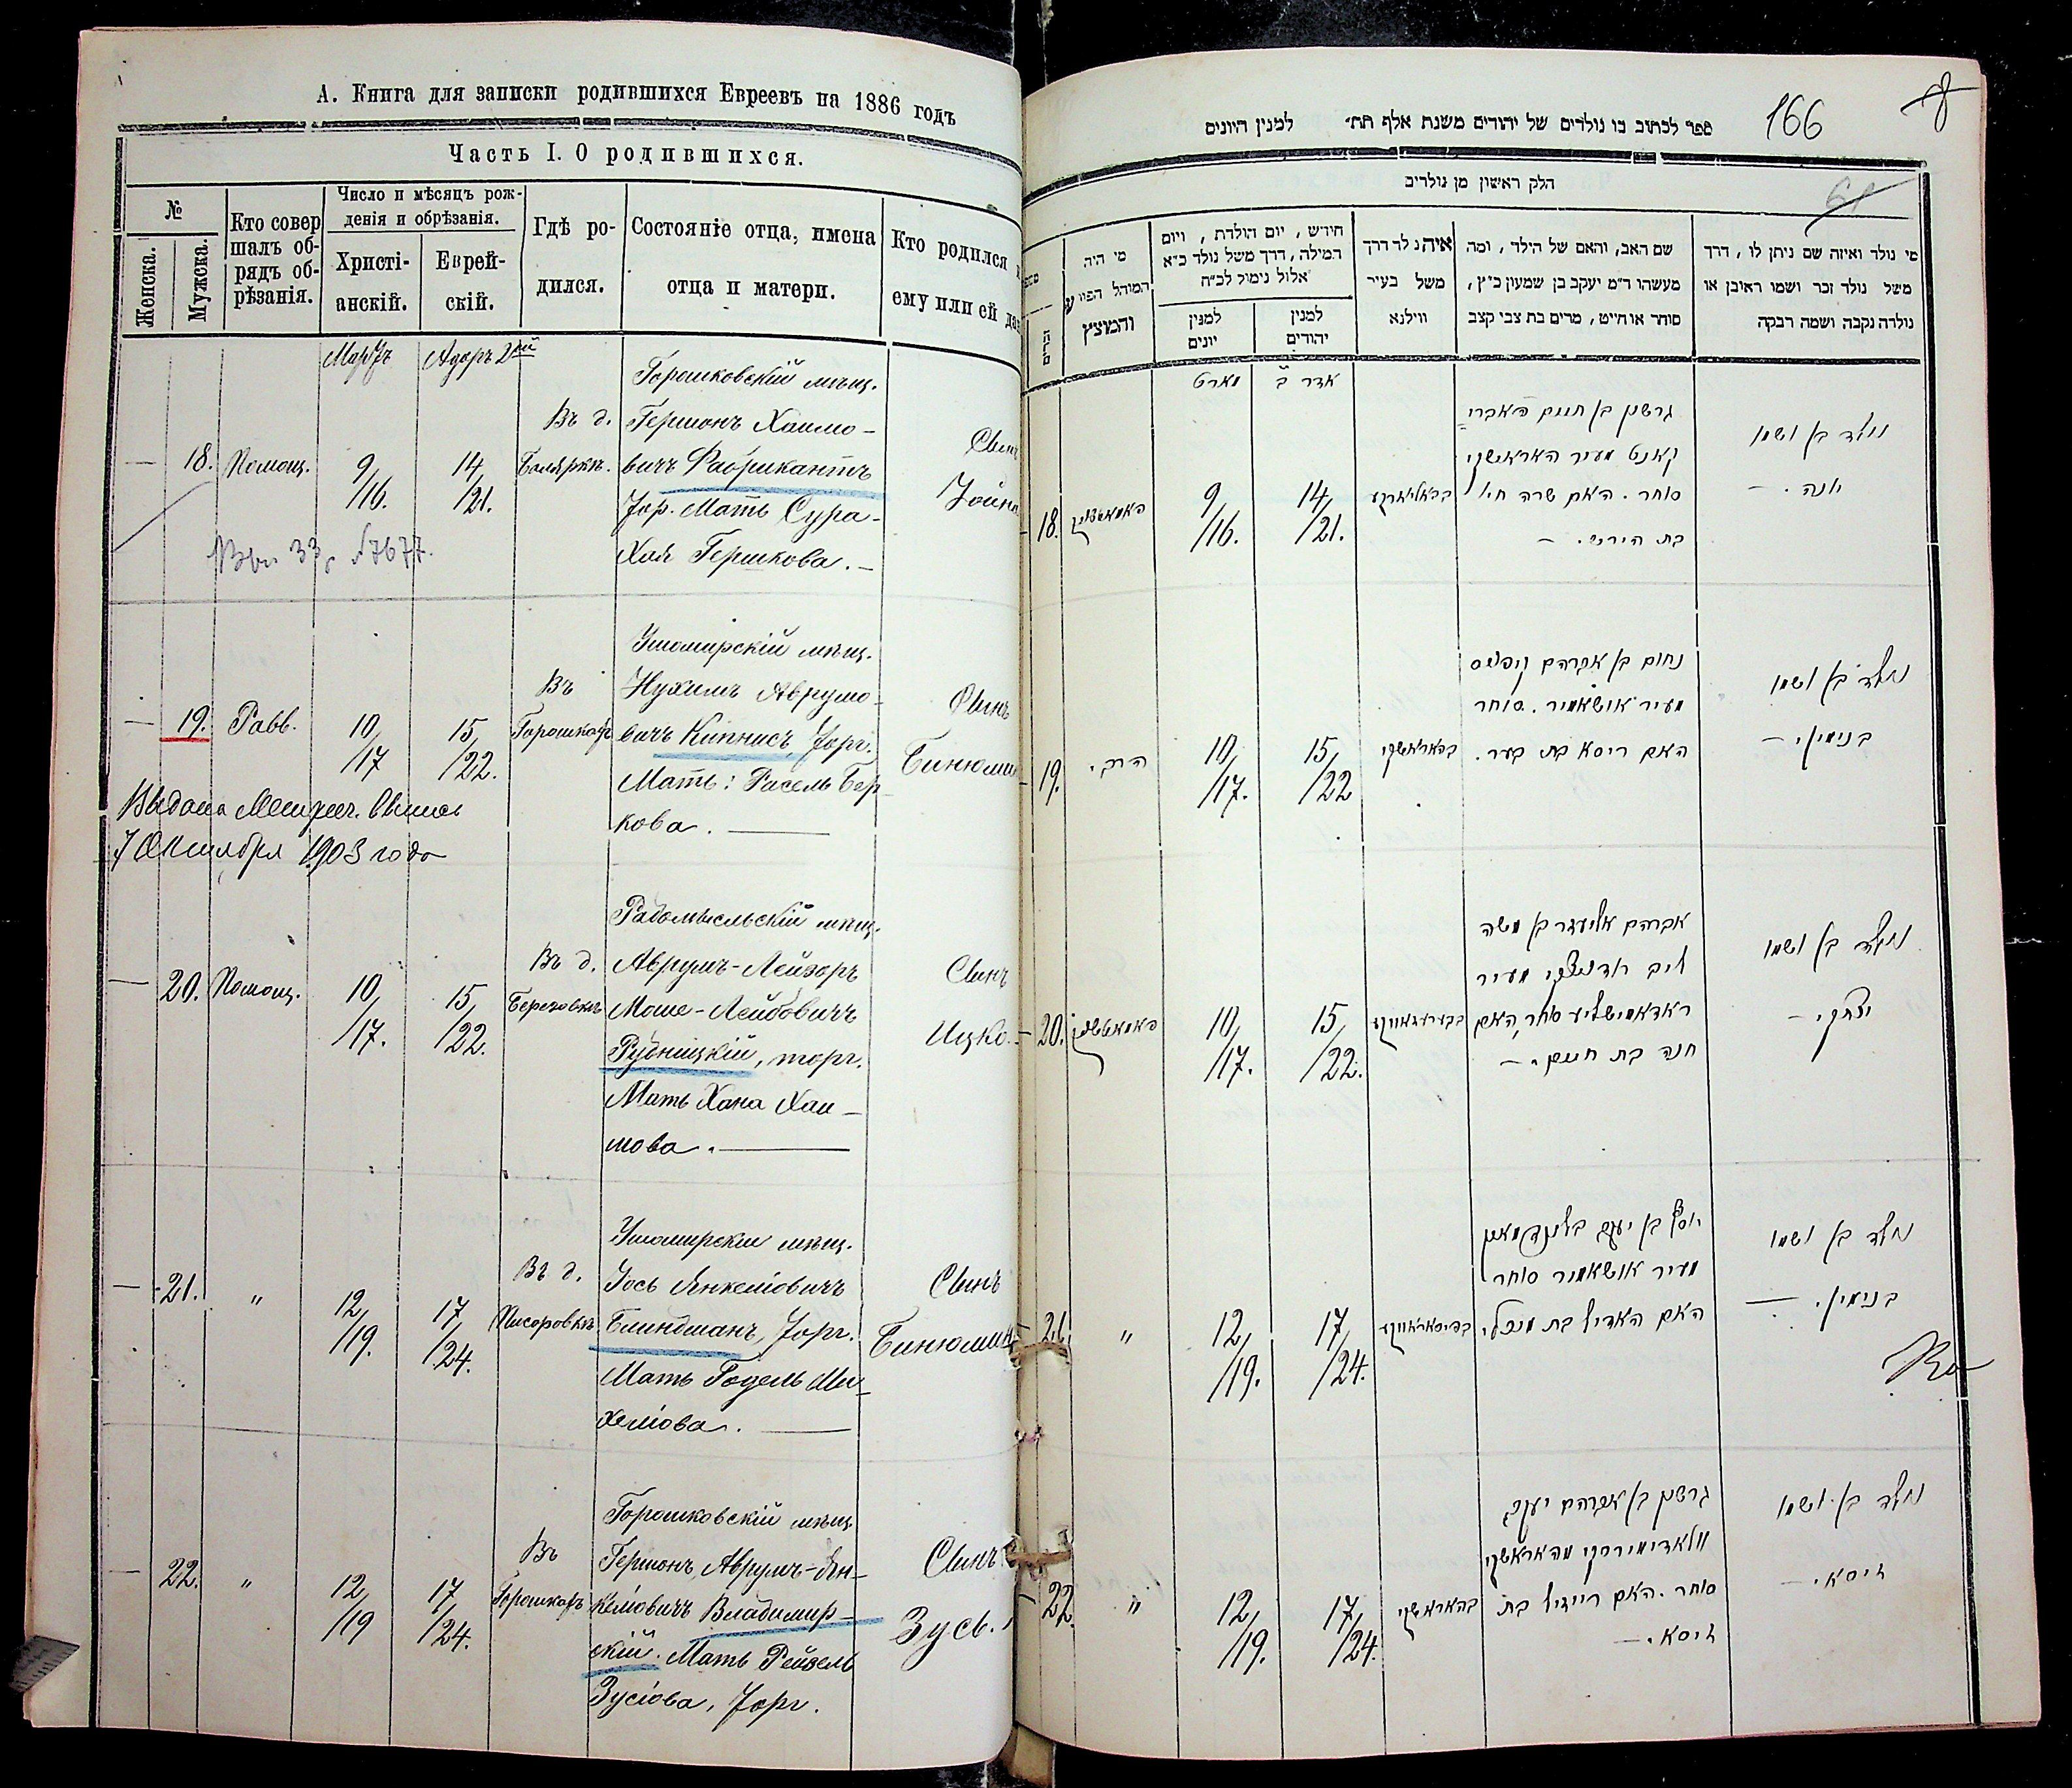 А. Книга для записки родившихся Евреевъ на 1886 годъ
Часть I. О родившихся.
№
Женска.
Мужска.
Кто совер
шалъ об-
рядъ об-
рѣзанія.
Число и мѣсяцъ рож-
денія и обрѣзанія.
Христі-
анскій.
Еврей-
скій.
Гдѣ ро-
дился.
Состояніе отца, имена
отца и матери.
Кто родился
ему или ей
Мартъ
Адаръ 2й
— 18. Помощ. 9/16. 14/21.
Въ д.
Боляркѣ.
Горошковскій мѣщ.
Гершонъ Хаимо-
вичъ Фабрикантъ
Торг. Мать Сура-
Хая Гершкова. —
Сынъ
Іойна
33 №7677.
— 19. Равв. 10/17 15/22.
Въ
Горошкахъ
Ушомирскій мѣщ.
Нухимъ Аврумо-
вичъ Кипнисъ, Торг.
Мать: Расель Бер
кова. —
Сынъ
Бинюми
Выдана Метрич. Выпись
7 Октября 1903 года
— 20. Помощ. 10/17. 15/22.
Въ д.
Березовкѣ
Радомысльскій мѣщ.
Аврумъ-Лейзоръ
Моше-Лейбовичъ
Рудницкій, торг.
Мать Хана Хаи-
мова. —
Сынъ
Ицко.
— 21. " 12/19. 17/24.
Въ д.
Писаровкѣ
Ушомирскій мѣщ.
Іось Янкеліовичъ
Блиндманъ, Торг.
Мать Годель Ми-
хеліова. —
Сынъ
Бинюминъ
— 22. " 12/19 17/24.
Въ
Горошкахъ
Горошковскій мѣщ.
Гершонъ Аврумъ-Ян-
келіовичъ Владимир-
скій. Мать Рейзель
Зусіова, Торг.
Сынъ
Зусь.
ספר לכתוב בו נולדים של יהודים משנת אלף תת׳ למנין היונים
166
8
61
חלק ראשון מן נולדים
זכרים
מי היה
המוהל הפורע
והמוצץ
חודש, יום הולדת, ויום
המילה, דרך משל נולד כ״א
אלול נימול לכ״ח
למנין
יונים
למנין
יהודים
איה נולד דרך
משל בעיר
ווילנא
שם האב, והאם של הילד, ומה
מעשהו ד״מ יעקב בן שמעון כ״ץ,
סוחר או חייט, מרים בת צבי קצב
מי נולד ואיזה שם ניתן לו, דרך
משל נולד זכר ושמו ראובן או
נולדה נקבה ושמה רבקה
מארט
אדר ב
18. 9/16. 14/21.
גרשון בן חיים פאברי
קאנט מעיר האראשקי
סוחר. האם שרה חיי׳
בת הירש. —
נולד בן ושמו
יונה. —
19. הרב. 10/17. 15/22
בהאראשקי
נחום בן אברהם קיפניס
מעיר אושאמיר. סוחר
האם ריסא בת בער.
נולד בן ושמו
בנימין. —
20. 10/17. 15/22.
אברהם אליעזר בן משה
ליב רודניצקי מעיר
ראדאמישליע סוחר, האם
חנה בת חיים. —
נולד בן ושמו
יצחק. —
21. " 12/19. 17/24.
יוסף בן יעקב בלינדמאן
מעיר אושאמיר סוחר
האם האדיל בת מיכלי
נולד בן ושמו
בנימין. —
22. " 12/19. 17/24.
בהאראשקי
גרשון בן אברהם יעקב
וולאדימירסקי מהאראשקי
סוחר. האם רייזיל בת
זיסא. —
נולד בן ושמו
זיסא. —